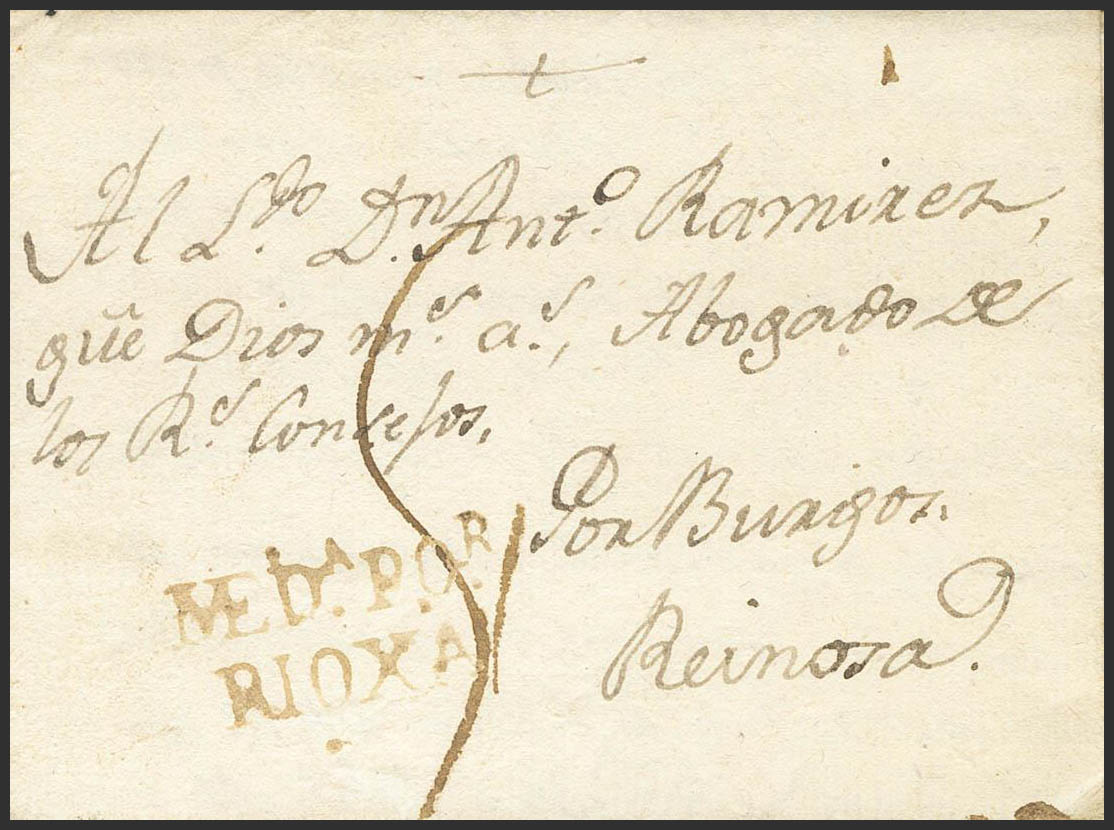 +
Al L.do D.n Ant.o Ramirez,
gûe Dios m.s a.s, Abogado de
los R.s Consejos.
Por Burgos.
Reinosa.
MED.A P.OR
RIOXA